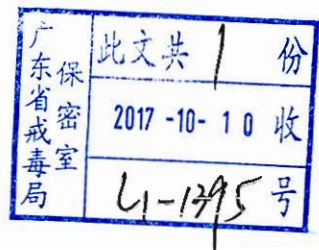 广东省戒毒局
保密室
此文共1份
2017-10-10收
L1-1395号